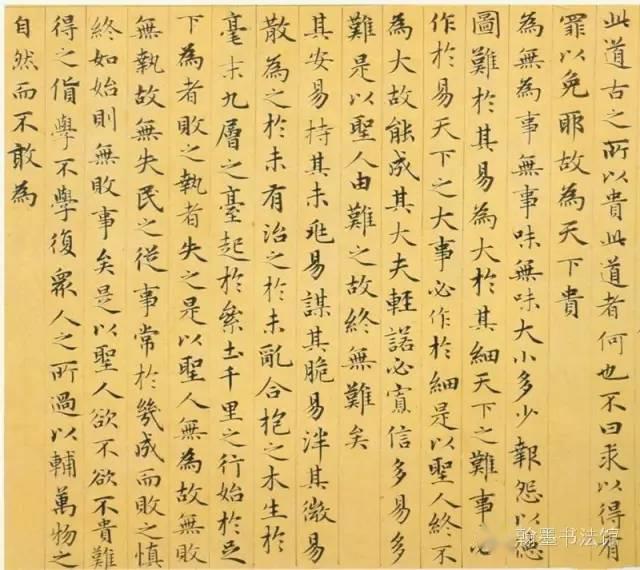 此道古之所以貴此道者何也不曰求以得有
罪以免耶故為天下貴
為無為事無事味無味大小多少報怨以德
圖難於其易為大於其細天下之難事必
作於易天下之大事必作於細是以聖人終不
為大故能成其大夫輕諾必寡信多易多
難是以聖人由難之故終無難矣
其安易持其未兆易謀其脆易泮其微易
散為之於未有治之於未亂合抱之木生於
毫末九層之臺起於絫土千里之行始於足
下為者敗之執者失之是以聖人無為故無敗
無執故無失民之從事常於幾成而敗之慎
終如始則無敗事矣是以聖人欲不欲不貴難
得之貨學不學復眾人之所過以輔萬物之
自然而不敢為
翰墨书法馆